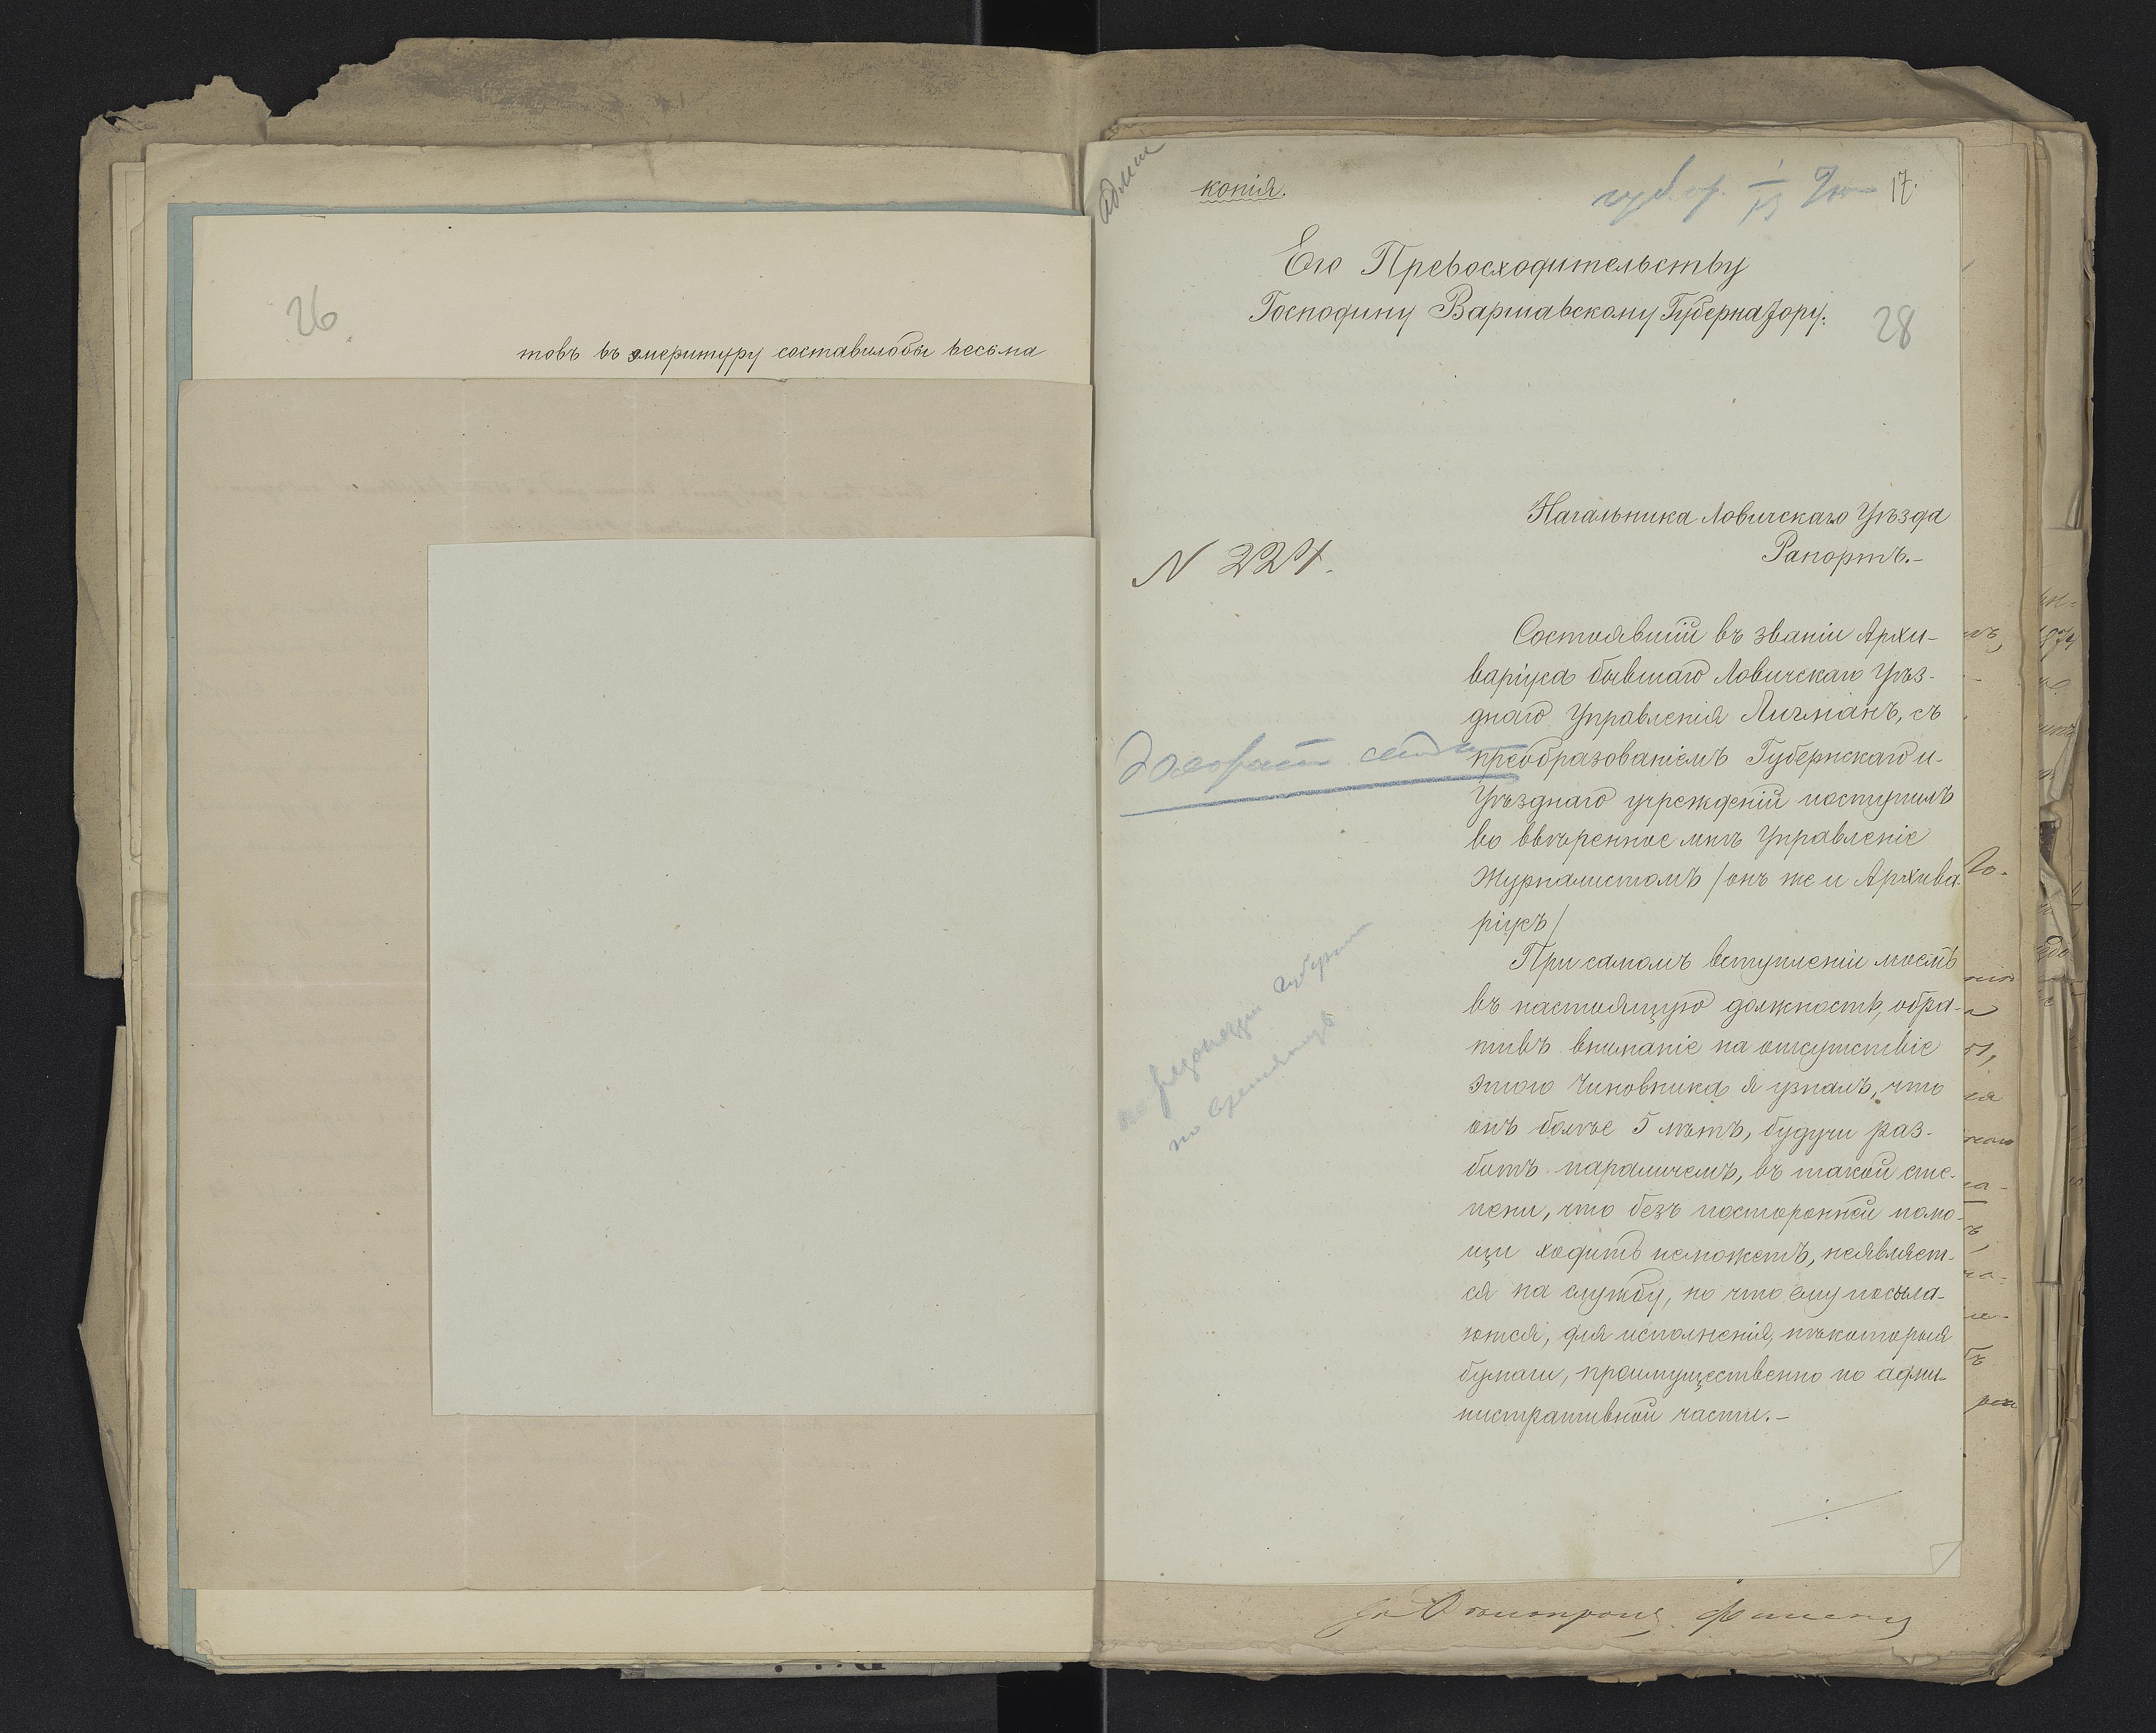 26
товъ въ эмеритуру составилобы весьма
копія.
17.
Его Превосходительству
Господину Варшавскому Губернатору.
28
Начальника Ловичскаго Уѣзда
Рапортъ.-
N 224.
Состоявшій въ званіи Архи-
варіуса бывшаго Ловичскаго Уѣз-
днаго Управленія Личманъ, съ
преобразованіемъ Губернскаго и-
Уѣзднаго учрежденій поступилъ
во ввѣренное мнѣ Управленіе
Журналистомъ /онъ же и Архива-
ріусъ/
При самомъ вступленіи моемъ
въ настоящую должность, обра-
тивъ вниманіе на отсутствіе
этого Чиновника я узналъ, что
онъ болѣе 5 лѣтъ, будучи раз-
битъ параличемъ, въ такой сте-
пени, что безъ посторонней помо-
щи ходить неможетъ, неявляет-
ся на службу, но что ему посыла-
ются, для исполненія, нѣкоторыя
бумаги, преимущественно по адми-
нистративной части.-